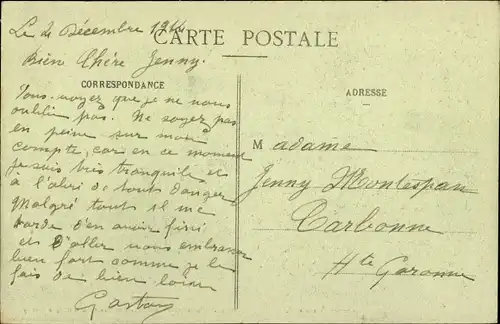 Le 2 Décembre 1914
CARTE POSTALE
Bien Chère Jenny.
CORRESPONDANCE
Vous voyez que je ne vous
oublie pas. Ne soyez pas
en peine sur mon
compte, car en ce moment
je suis très tranquile et
à l'abri de tout danger
Malgré tout il me
tarde d'en avoir fini
et d'aller vous embrasser
bien fort comme je le
fais de bien loin
Gaston
ADRESSE
Madame
Jenny Montespan
Carbonne
Hte Garonne